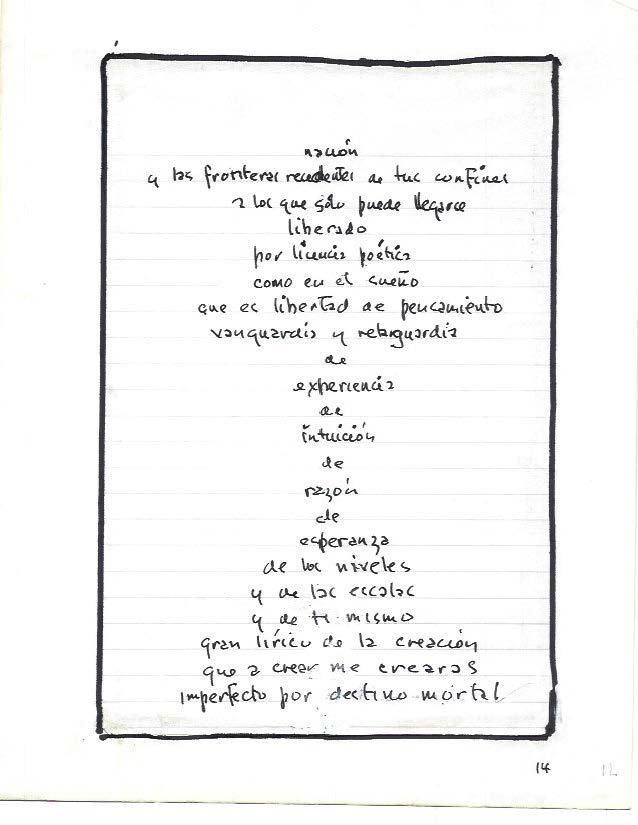 nación
y las fronteras recedentes de tus confines
a los que sólo puede llegarse
liberado
por licencia poética
como en el sueño
que es libertad de pensamiento
vanguardia y retaguardia
de
experiencia
de
intuición
de
razón
de
esperanza
de los niveles
y de las escalas
y de ti mismo
gran lírico de la creación
que a crear me crearas
imperfecto por destino mortal
14
12